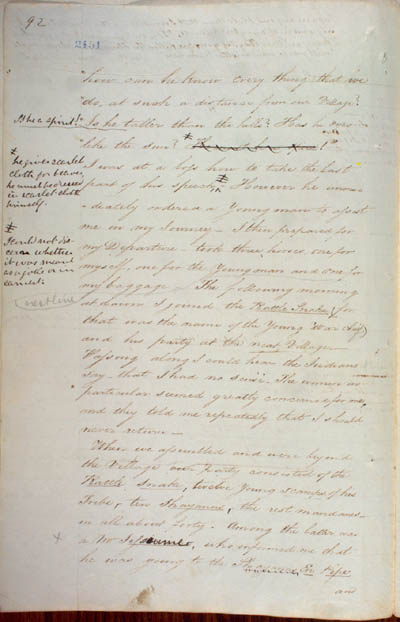 92
"how can he know every thing that we
do, at such a distance from our Village?
Is he a spirit?
Is he taller than the hills? Has he
like the sun?
he gives scarlet
cloth for beaver
he must be dressed
in scarlet cloth
himself.
I was at a loss how to take the last
part of his speech. However he imme-
diately ordered a young man to assist
me in my Journey. I then prepared for
I could not dis-
cern whether
it was meant
as a joke or in
earnest.
my Departure. took three horses, one for
myself, one for the Young man and one for
my baggage. The following morning
next line
at dawn I joined the Rattle Snake (for
that was the name of the Young War Chief)
and his party at the next Village
Passing along I could hear the Indians
say that I had no sense. The women in
particular seemed greatly concerned for me,
and they told me repeatedly that I should
never return —
When we assembled and were beyond
the Village our Party consisted of the
Rattle Snake, twelve young scamps of his
Tribe, two the rest mandanes
in all about forty. Among the latter was
a Mr who informed me that
he was going to the Pipe
and